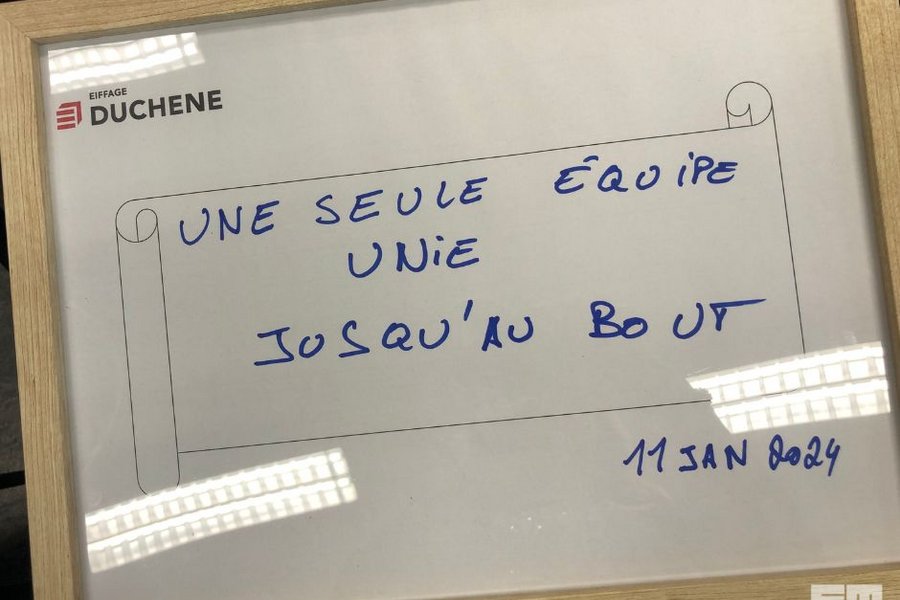 EIFFAGE
DUCHENE
UNE SEULE ÉQUIPE
UNIE
JUSQU'AU BOUT
11 JAN 2024